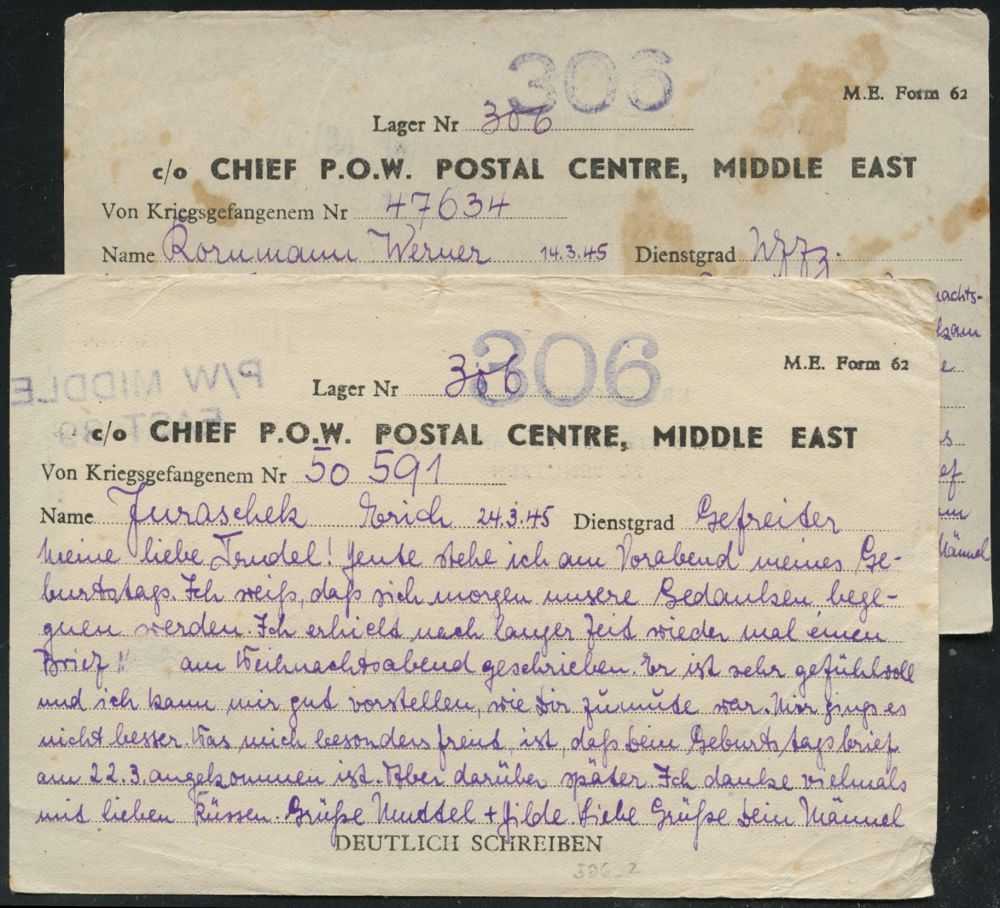 306
M.E. Form 62
Lager Nr 306
c/o CHIEF P.O.W. POSTAL CENTRE, MIDDLE EAST
Von Kriegsgefangenem Nr 47634
Name Kornmann Werner 14.3.45 Dienstgrad Uffz.
306
M.E. Form 62
P/W MIDDLE
EAST
Lager Nr 306
c/o CHIEF P.O.W. POSTAL CENTRE, MIDDLE EAST
Von Kriegsgefangenem Nr 50 591
Name Juraschek Erich 24.3.45 Dienstgrad Gefreiter
Meine liebe Trudel! Heute stehe ich am Vorabend meines Ge-
burtstags. Ich weiß, daß sich morgen unsere Gedanken bege-
gnen werden. Ich erhielt nach langer Zeit wieder mal einen
Brief am Weihnachtsabend geschrieben. Er ist sehr gefühlvoll
und ich kann mir gut vorstellen, wie Dir zumute war. Mir gings es
nicht besser. Was mich besonders freut, ist, daß Dein Geburtstagsbrief
am 22.3. angekommen ist. Aber darüber später. Ich danke vielmals
mit lieben Küssen. Grüße Muttel + Hilde Liebe Grüße Dein Männel
DEUTLICH SCHREIBEN
306_2